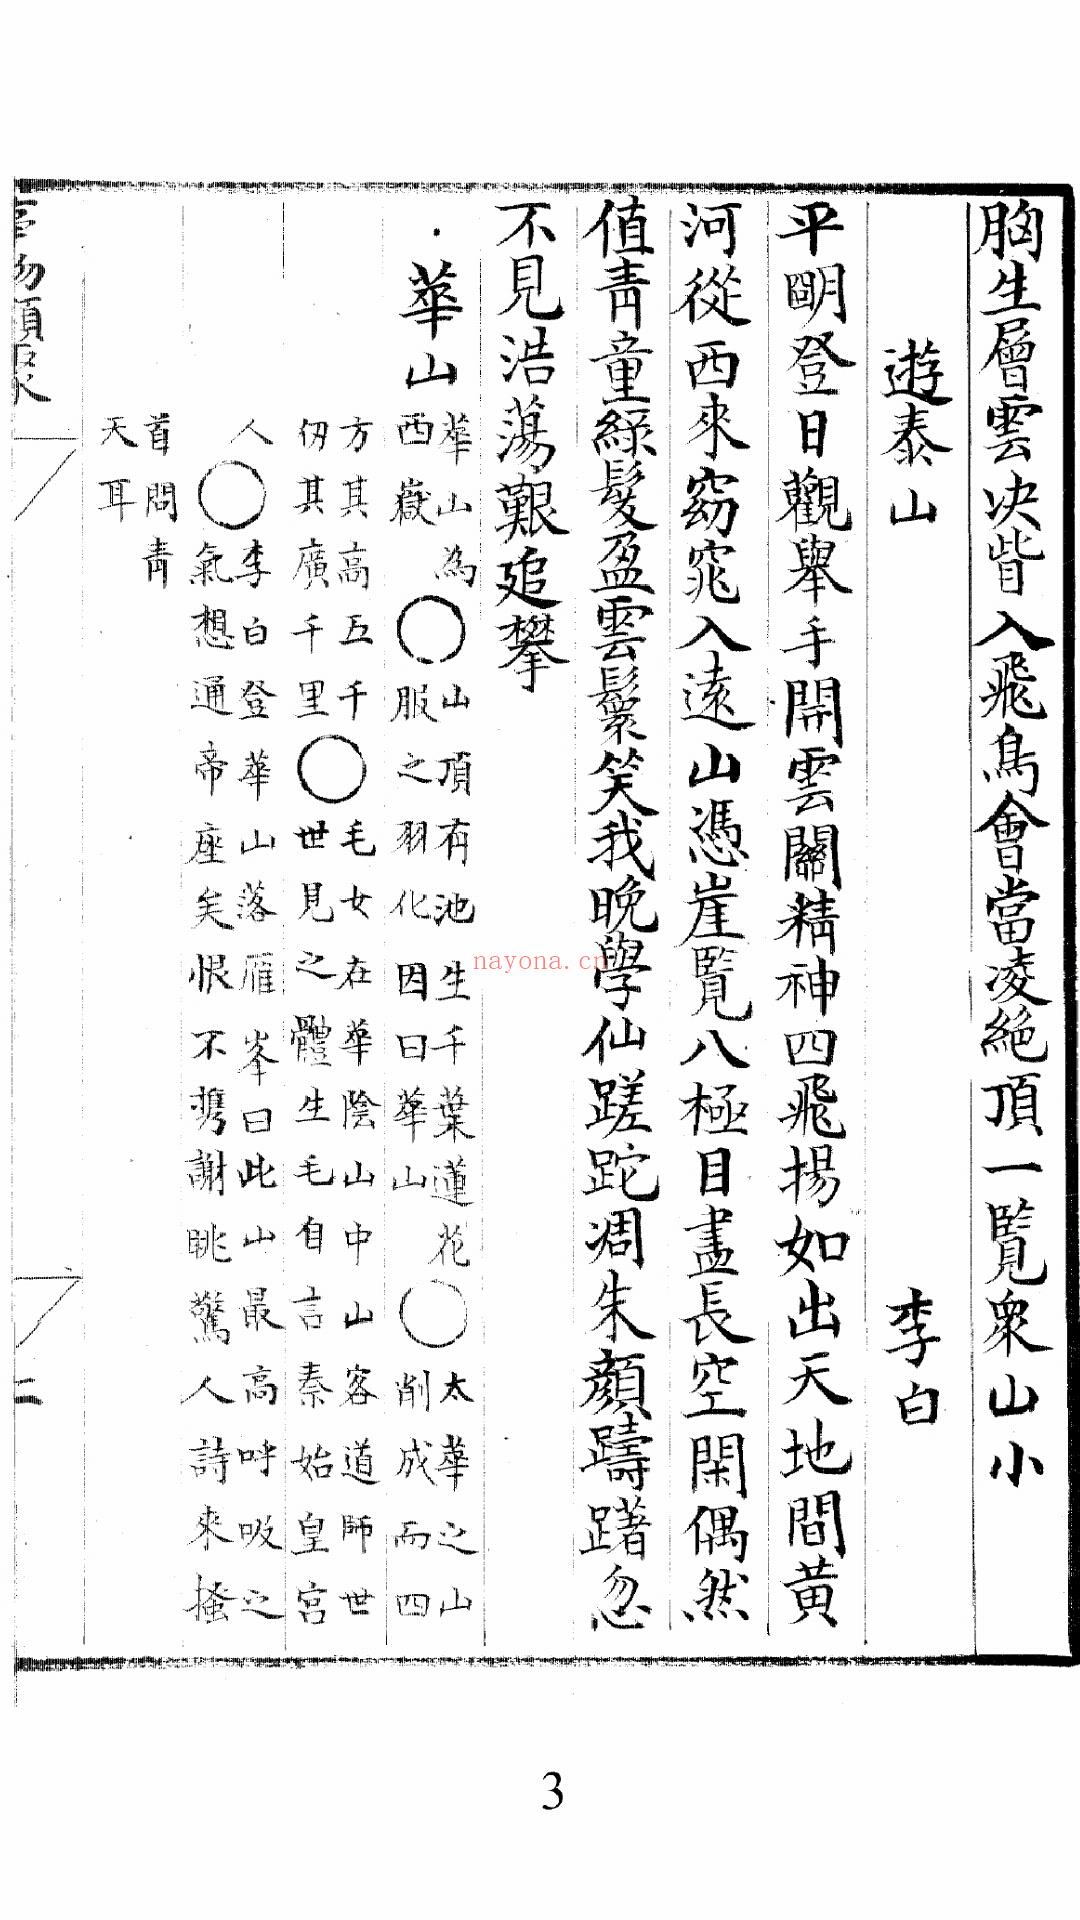 胸生層雲决眥入飛鳥會當凌絕頂一覽衆山小
遊泰山 李白
平明登日觀舉手開雲關精神四飛揚如出天地間黄
河從西來窈窕入遠山憑崖覽八極目盡長空閑偶然
值青童綠髮盈雲鬟笑我晚學仙蹉跎凋朱顏躊躇忽
不見浩蕩艱追攀
·華山 華山為西嶽○山頂有池生千葉蓮花服之羽化因曰華山○太華之山削成而四
方其高五千仞其廣千里○毛女在華陰山中山客道師世世見之體生毛自言秦始皇宫
人○李白登華山落雁峯曰此山最高呼吸之氣想通帝座矣恨不携謝眺驚人詩來搔
首問青天耳
二
nayona.cn
3